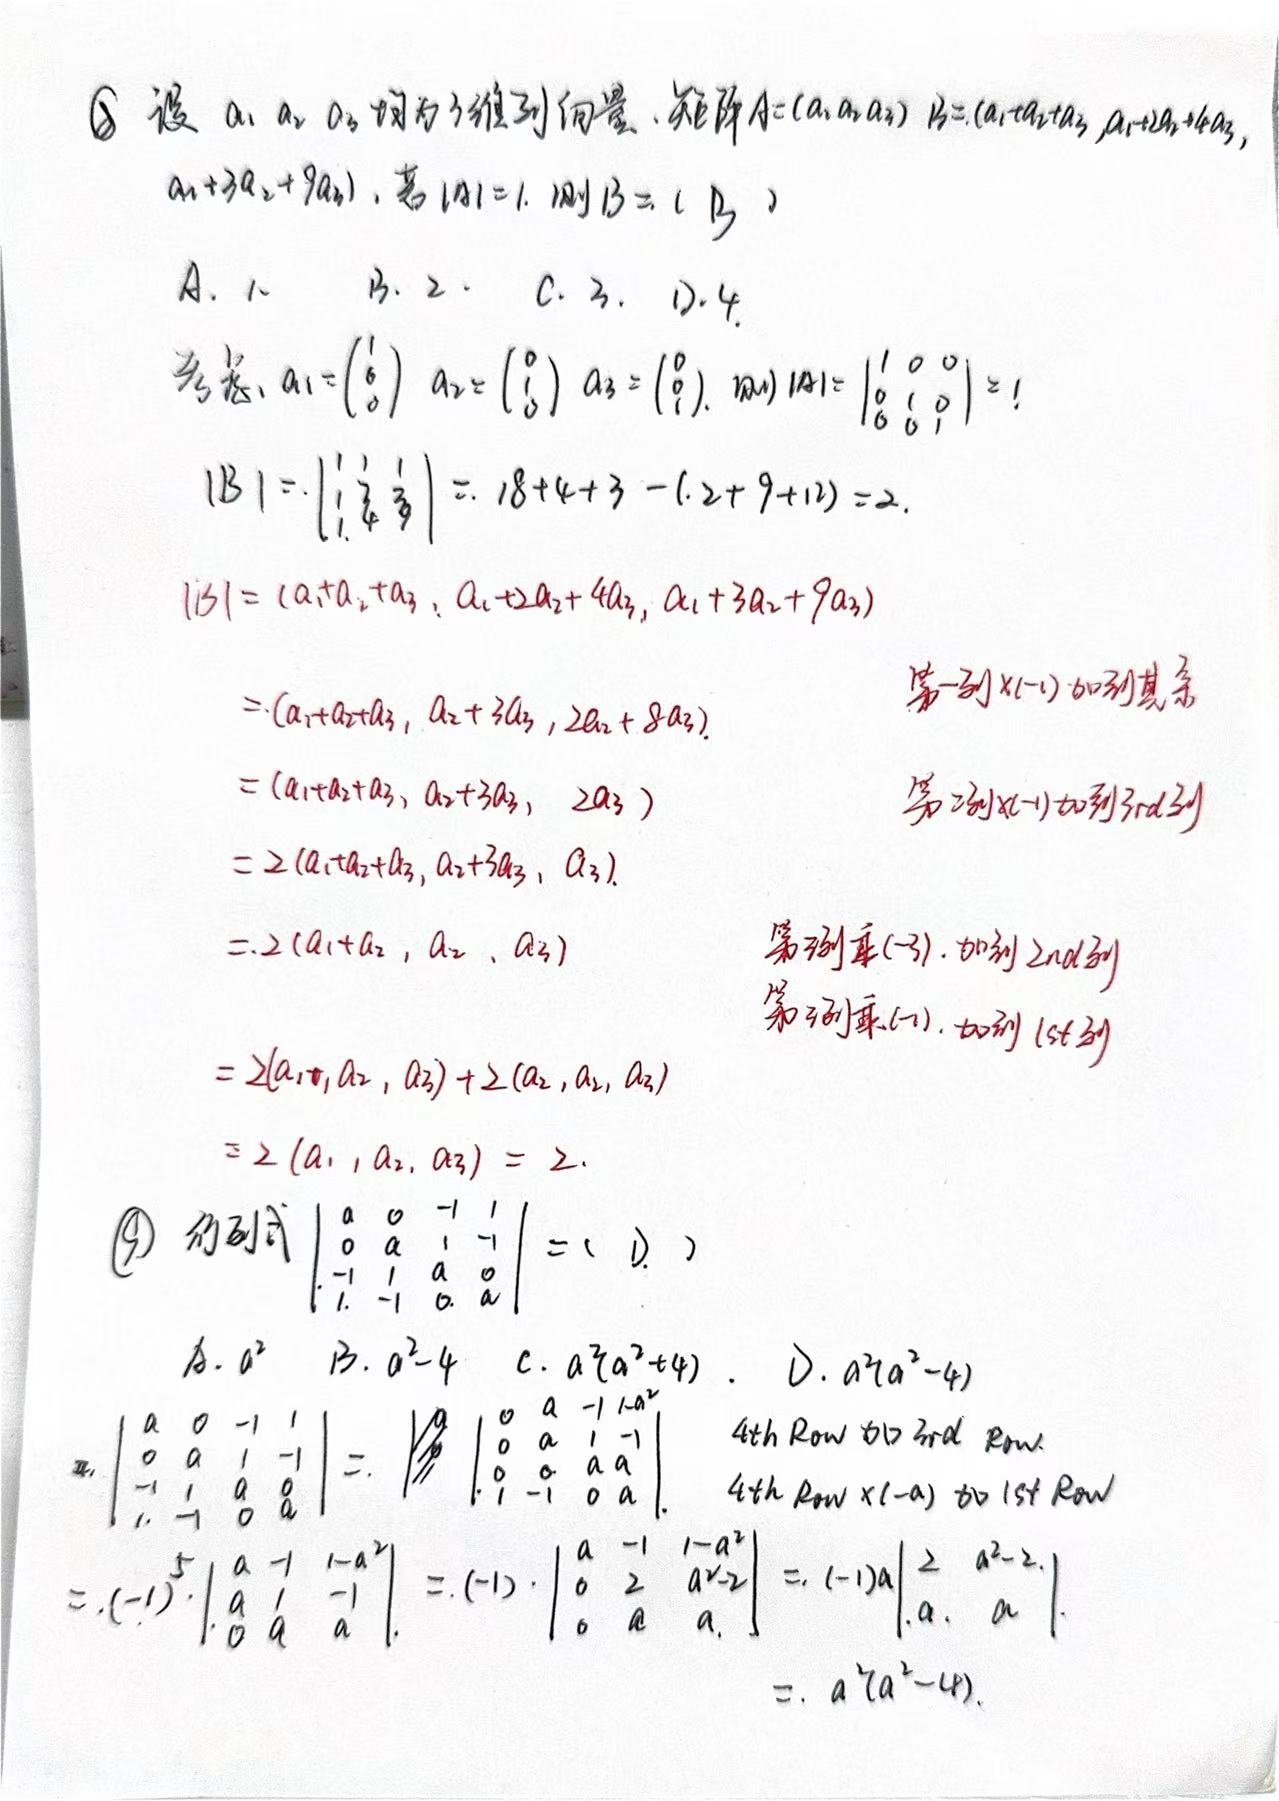 ⑧ 设 a₁ a₂ a₃ 均为3维列向量、矩阵A=(a₁ a₂ a₃) B=(a₁+a₂+a₃, a₁+2a₂+4a₃,
a₁+3a₂+9a₃)、若|A|=1. 则B=( B )
A. 1. B. 2. C. 3. D. 4.
考虑、a₁=(1 0 0) a₂=(0 1 0) a₃=(0 0 1). 则|A|= |1 0 0 / 0 1 0 / 0 0 1| =1
|B|= |1 1 1 / 1 2 3 / 1 4 9| = 18+4+3-(2+9+12)=2.
|B|=(a₁+a₂+a₃, a₁+2a₂+4a₃, a₁+3a₂+9a₃)
=(a₁+a₂+a₃, a₂+3a₃, 2a₂+8a₃). 第一列×(-1)加到其余
=(a₁+a₂+a₃, a₂+3a₃, 2a₃) 第二列×(-1)加到3rd列
=2(a₁+a₂+a₃, a₂+3a₃, a₃).
=2(a₁+a₂, a₂、a₃) 第3列乘(-3).加到2nd列
第3列乘(-1).加到1st列
=2(a₁, a₂, a₃)+2(a₂, a₂, a₃)
=2(a₁, a₂, a₃)=2.
⑨ 行列式 |a 0 -1 1 / 0 a 1 -1 / -1 1 a 0 / 1 -1 0 a| =( D. )
A. a² B. a²-4 C. a²(a²+4). D. a²(a²-4)
= |a 0 -1 1 / 0 a 1 -1 / -1 1 a 0 / 1 -1 0 a| = |0 a -1 1-a² / 0 a 1 -1 / 0 0 a a / 1 -1 0 a| 4th Row to 3rd Row.
4th Row ×(-a) to 1st Row
=(-1)⁵·|a -1 1-a² / a 1 -1 / 0 a a| =(-1)·|a -1 1-a² / 0 2 a²-2 / 0 a a| =(-1)a|2 a²-2 / a a|
= a²(a²-4).